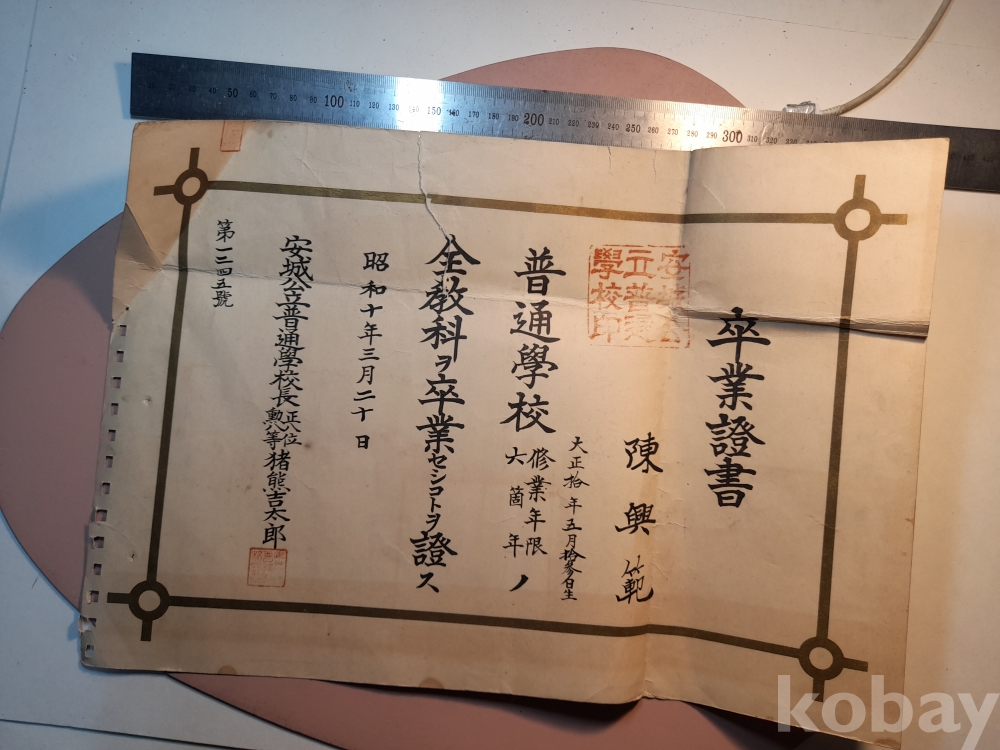 卒業證書
陳興範
大正拾年五月拾參日生
普通學校
修業年限
六箇年ノ
全敎科ヲ卒業セシコトヲ證ス
昭和十年三月二十日
安城公立普通學校長
正八位
勲八等
猪熊吉太郎
第一二四五號
50
100
150
200
250
300
kobay